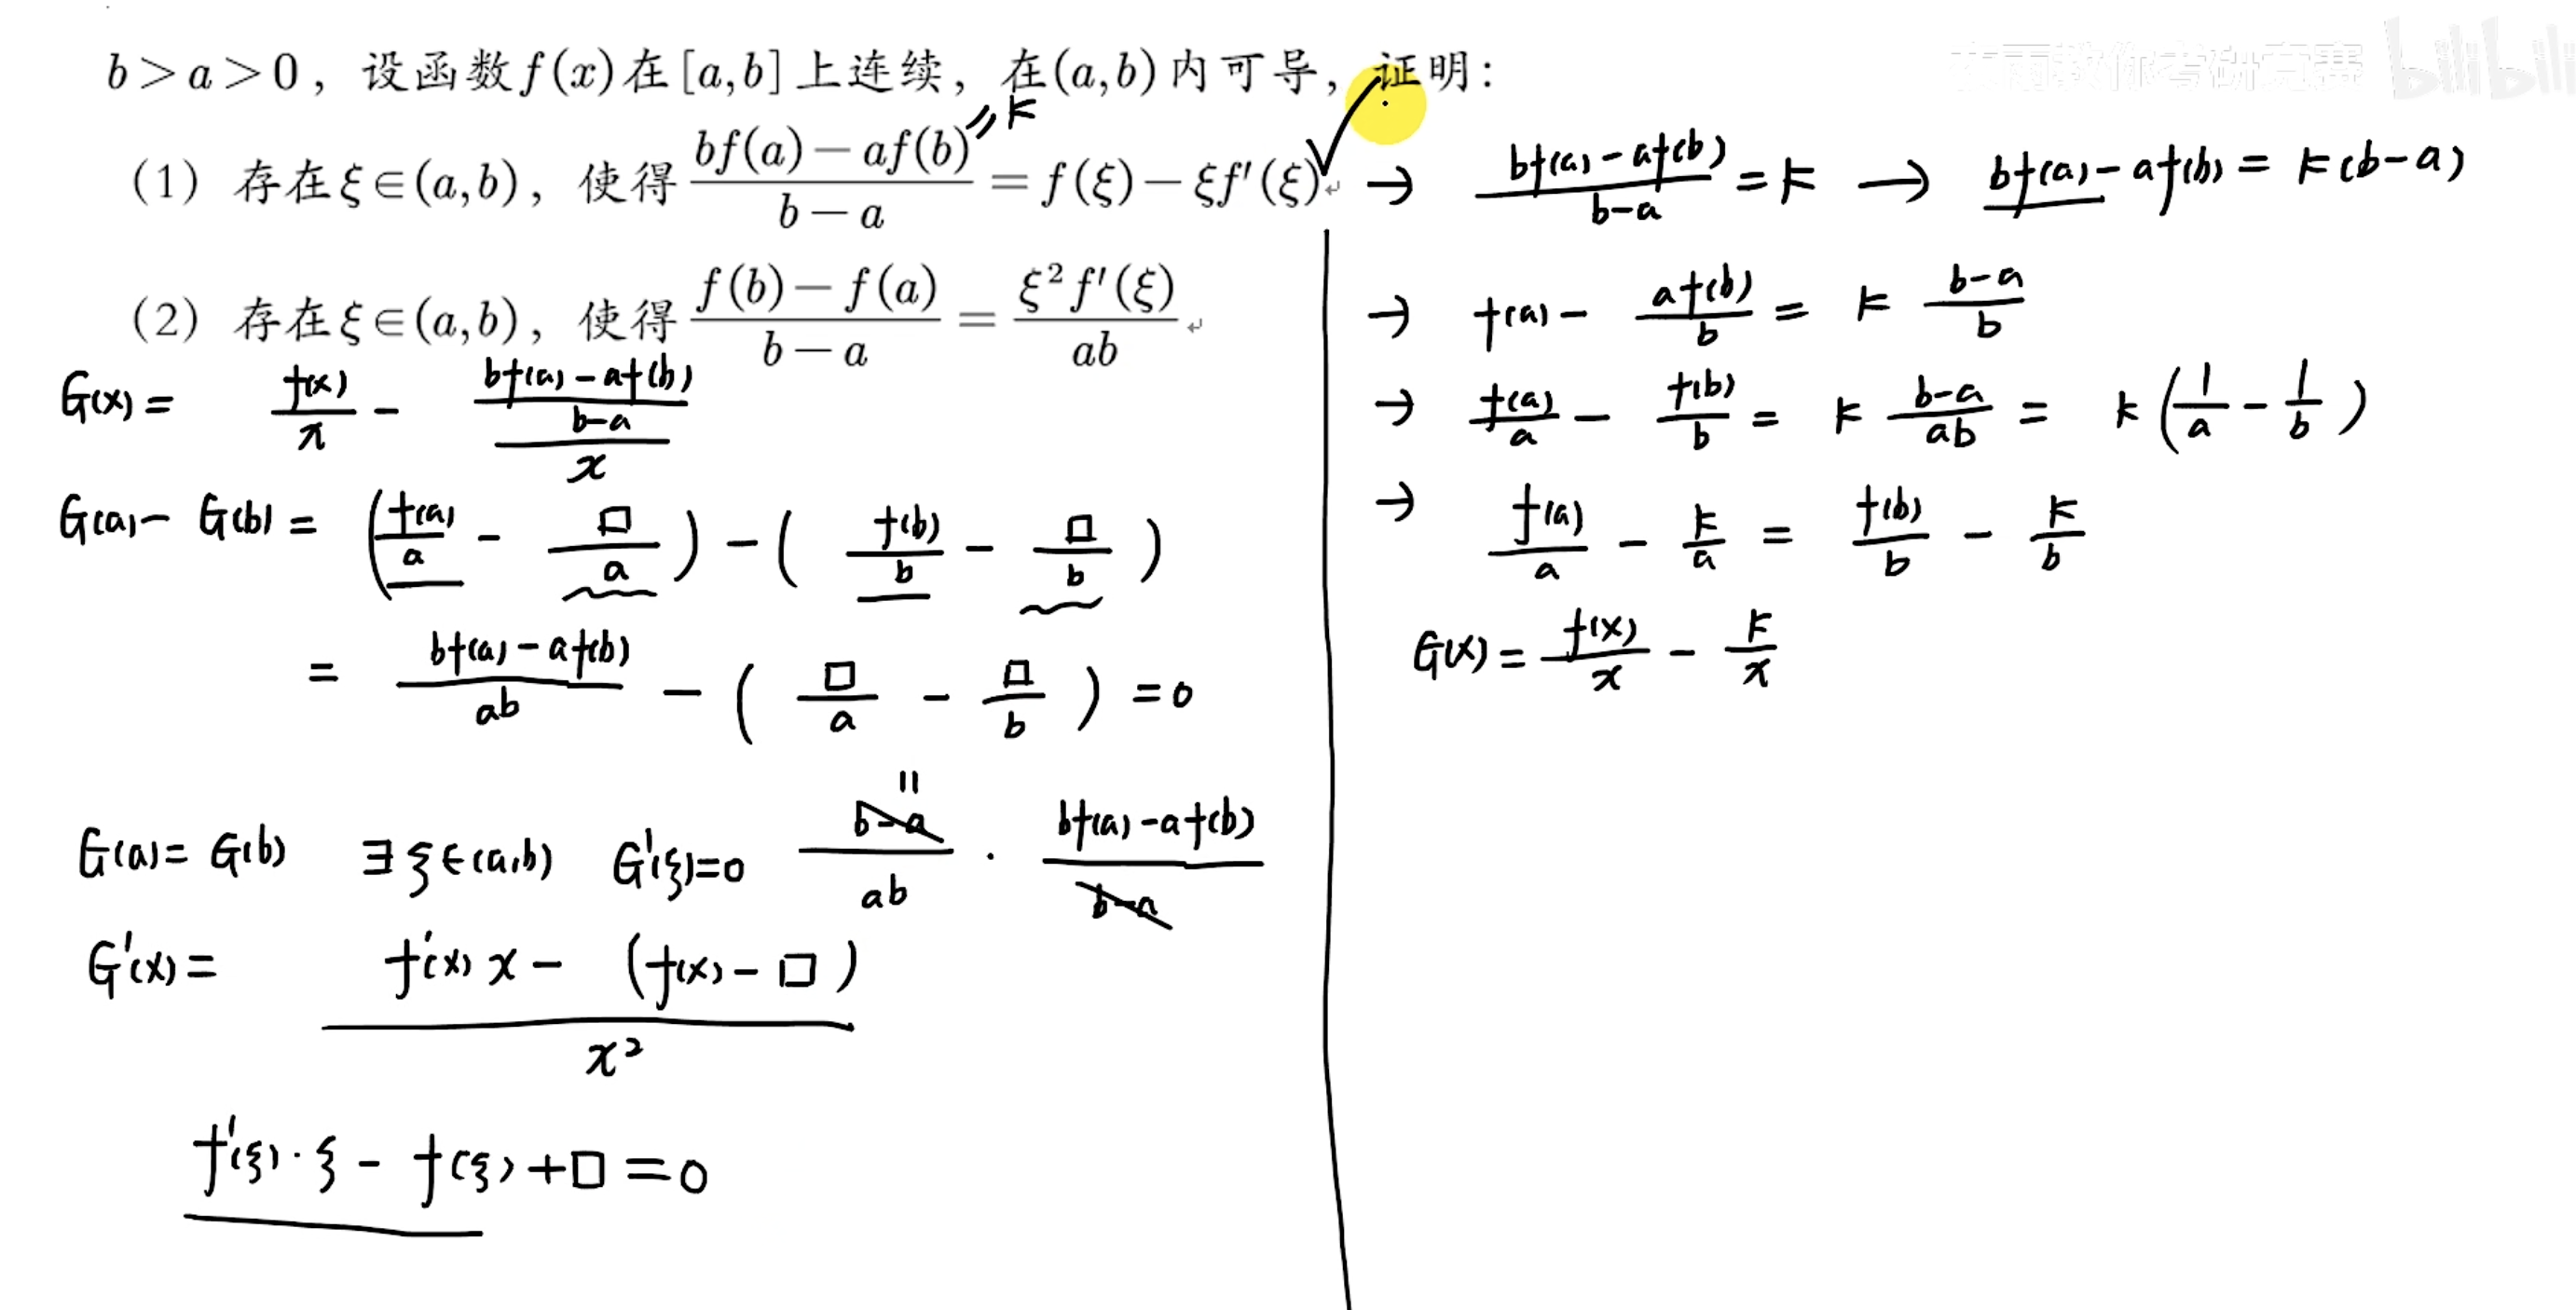 b>a>0，设函数f(x)在[a,b]上连续，在(a,b)内可导，证明：
(1) 存在ξ∈(a,b)，使得 \frac{bf(a)-af(b)}{b-a} = f(ξ)-ξf'(ξ)
= k
(2) 存在ξ∈(a,b)，使得 \frac{f(b)-f(a)}{b-a} = \frac{ξ²f'(ξ)}{ab}
G(x) = \frac{f(x)}{x} - \frac{\frac{bf(a)-af(b)}{b-a}}{x}
G(a) - G(b) = (\frac{f(a)}{a} - \frac{□}{a}) - (\frac{f(b)}{b} - \frac{□}{b})
= \frac{bf(a)-af(b)}{ab} - (\frac{□}{a} - \frac{□}{b}) = 0
=
\frac{b-a}{ab} · \frac{bf(a)-af(b)}{b-a}
G(a) = G(b) ∃ξ∈(a,b) G'(ξ)=0
G'(x) = \frac{f'(x)x - (f(x)-□)}{x²}
f'(ξ)·ξ - f(ξ) + □ = 0
→ \frac{bf(a)-af(b)}{b-a} = k → bf(a)-af(b) = k(b-a)
→ f(a) - \frac{af(b)}{b} = k \frac{b-a}{b}
→ \frac{f(a)}{a} - \frac{f(b)}{b} = k \frac{b-a}{ab} = k(\frac{1}{a} - \frac{1}{b})
→ \frac{f(a)}{a} - \frac{k}{a} = \frac{f(b)}{b} - \frac{k}{b}
G(x) = \frac{f(x)}{x} - \frac{k}{x}
雨教你考研竞赛 bilibili